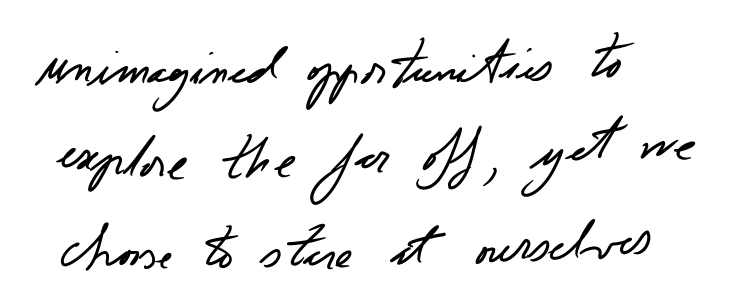 unimagined opportunities to
explore the far off, yet we
choose to stare at ourselves